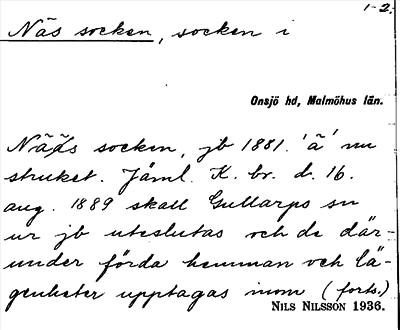 1-2.
Näs socken, socken i
Onsjö hd, Malmöhus län.
Nääs socken, jb 1881. 'ä' nu
struket. Jäml. K. br. d. 16.
aug. 1889 skall Gullarps sn
ur jb uteslutas och de där-
under förda hemman och lä-
genheter upptagas inom (forts.)
NILS NILSSON 1936.